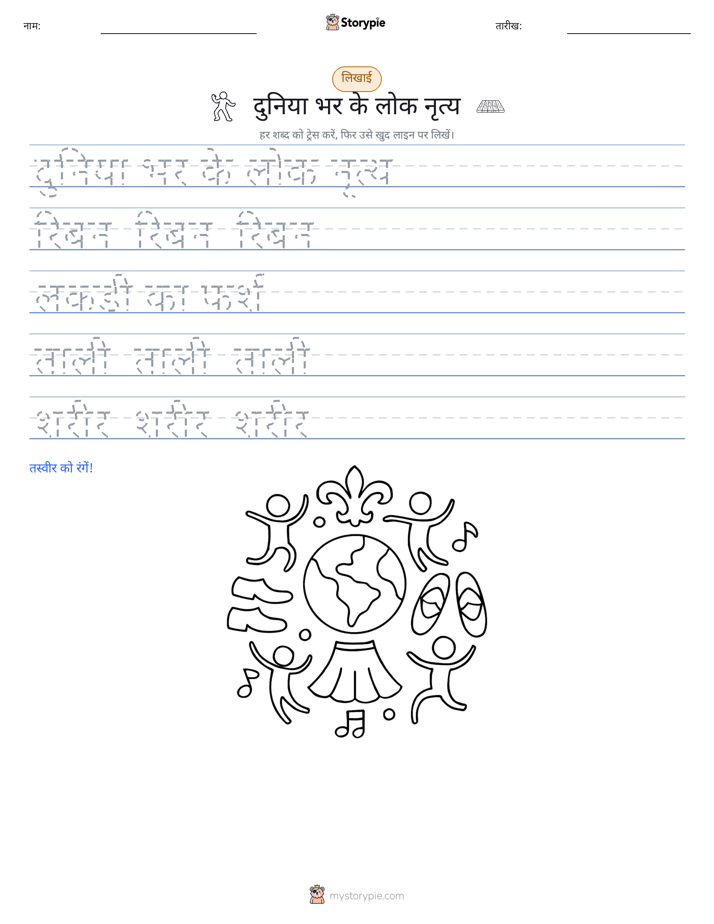 नाम:
Storypie
तारीख:
लिखाई
दुनिया भर के लोक नृत्य
हर शब्द को ट्रेस करें, फिर उसे खुद लाइन पर लिखें।
दुनिया भर के लोक नृत्य
रिबन रिबन रिबन
लकड़ी का फर्श
ताली ताली ताली
शरीर शरीर शरीर
तस्वीर को रंगें!
mystorypie.com